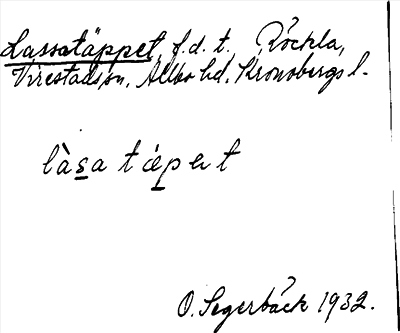 Lassatäppet, f.d. t. Röckla,
Virestads sn, Allbo hd. Kronobergs l.
làsa tæpet
O. Segerbäck 1932.